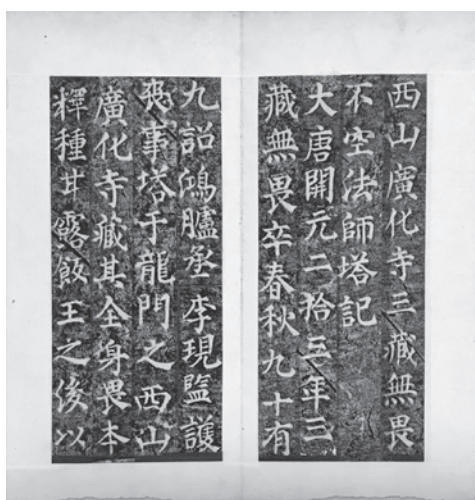 西山廣化寺三藏無畏
不空法師塔記
大唐開元二拾三年三
藏無畏卒春秋九十有
九詔鴻臚丞李現監護
喪事塔于龍門之西山
廣化寺藏其全身畏本
釋種甘露飯王之後以